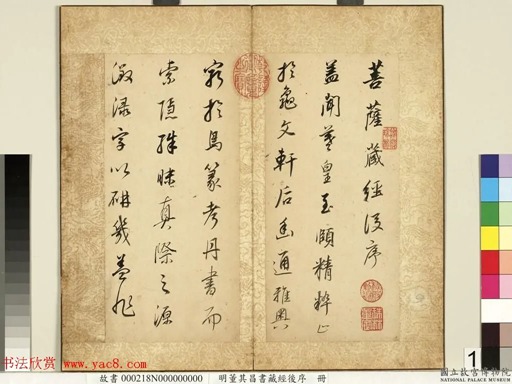 菩薩藏經後序
蓋聞羲皇至賾精粹止
於龜文軒后幽通雅奧
窮於鳥篆考丹書而
索隱殊昧真際之源
徵綠字以研幾蓋非
1
书法欣赏
www.yac8.com
故書 000218N000000000 明董其昌書藏經後序 冊
國立故宮博物院
NATIONAL PALACE MUSEUM